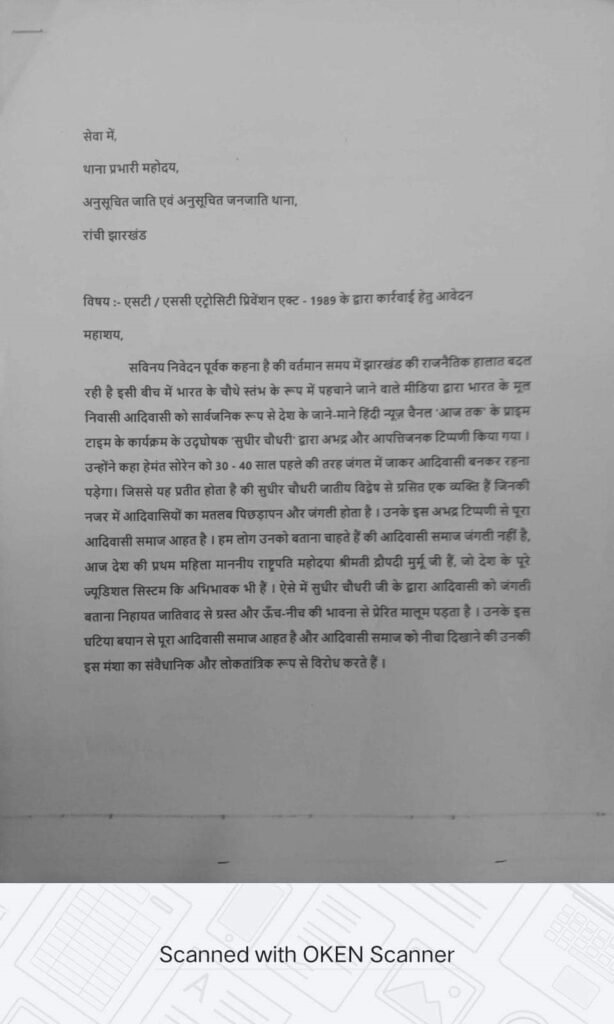 सेवा में,
थाना प्रभारी महोदय,
अनुसूचित जाति एवं अनुसूचित जनजाति थाना,
रांची झारखंड
विषय :- एसटी / एससी एट्रोसिटी प्रिवेंशन एक्ट - 1989 के द्वारा कार्रवाई हेतु आवेदन
महाशय,
सविनय निवेदन पूर्वक कहना है की वर्तमान समय में झारखंड की राजनैतिक हालात बदल
रही है इसी बीच में भारत के चौथे स्तंभ के रूप में पहचाने जाने वाले मीडिया द्वारा भारत के मूल
निवासी आदिवासी को सार्वजनिक रूप से देश के जाने-माने हिंदी न्यूज़ चैनल 'आज तक' के प्राइम
टाइम के कार्यक्रम के उद्घोषक 'सुधीर चौधरी' द्वारा अभद्र और आपत्तिजनक टिप्पणी किया गया ।
उन्होंने कहा हेमंत सोरेन को 30 - 40 साल पहले की तरह जंगल में जाकर आदिवासी बनकर रहना
पड़ेगा। जिससे यह प्रतीत होता है की सुधीर चौधरी जातीय विद्वेष से ग्रसित एक व्यक्ति हैं जिनकी
नजर में आदिवासियों का मतलब पिछड़ापन और जंगली होता है । उनके इस अभद्र टिप्पणी से पूरा
आदिवासी समाज आहत है । हम लोग उनको बताना चाहते हैं की आदिवासी समाज जंगली नहीं है,
आज देश की प्रथम महिला माननीय राष्ट्रपति महोदया श्रीमती द्रौपदी मुर्मू जी हैं, जो देश के पूरे
ज्यूडिशल सिस्टम कि अभिभावक भी हैं । ऐसे में सुधीर चौधरी जी के द्वारा आदिवासी को जंगली
बताना निहायत जातिवाद से ग्रस्त और ऊँच-नीच की भावना से प्रेरित मालूम पड़ता है । उनके इस
घटिया बयान से पूरा आदिवासी समाज आहत है और आदिवासी समाज को नीचा दिखाने की उनकी
इस मंशा का संवैधानिक और लोकतांत्रिक रूप से विरोध करते हैं ।
Scanned with OKEN Scanner